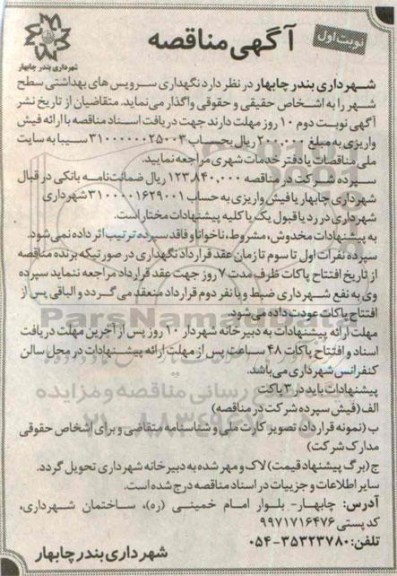 نوبت اول
آگهی مناقصه
شهرداری بندر چابهار
شهرداری بندر چابهار در نظر دارد نگهداری سرویس های بهداشتی سطح
شهر را به اشخاص حقیقی و حقوقی واگذار می‌نماید. متقاضیان از تاریخ نشر
آگهی نوبت دوم ۱۰ روز مهلت دارند جهت دریافت اسناد مناقصه با ارائه فیش
واریزی به مبلغ ۲۰۰۰۰۰۰ ریال بحساب ۳۱۰۰۰۰۰۰۲۵۰۰۳ سیبا به سایت
ملی مناقصات یا دفتر خدمات شهری مراجعه نمایند.
سپرده شرکت در مناقصه ۱۲۳,۸۴۰,۰۰۰ ریال ضمانت‌نامه بانکی در قبال
شهرداری چابهار یا فیش واریزی به حساب ۳۱۰۰۰۰۱۶۲۹۰۰۱ شهرداری
شهرداری در رد یا قبول یک یا کلیه پیشنهادات مختار است.
به پیشنهادات مخدوش، مشروط، ناخوانا و فاقد سپرده ترتیب اثر داده نمی‌شود.
سپرده نفرات اول تا سوم تا زمان عقد قرارداد نگهداری در صورتیکه برنده مناقصه
از تاریخ افتتاح پاکات ظرف مدت ۷ روز جهت عقد قرارداد مراجعه ننماید سپرده
وی به نفع شهرداری ضبط و با نفر دوم قرارداد منعقد می گردد و الباقی پس از
افتتاح پاکات عودت داده می‌شود.
مهلت ارائه پیشنهادات به دبیرخانه شهردار ۱۰ روز پس از آخرین مهلت دریافت
اسناد و افتتاح پاکات ۴۸ ساعت پس از مهلت ارائه پیشنهادات در محل سالن
کنفرانس شهرداری می‌باشد.
پیشنهادات باید در ۳ پاکت
الف (فیش سپرده شرکت در مناقصه)
ب (نمونه قرارداد، تصویر کارت ملی و شناسنامه متقاضی و برای اشخاص حقوقی
مدارک شرکت)
ج (برگ پیشنهاد قیمت) لاک و مهر شده به دبیرخانه شهرداری تحویل گردد.
سایر اطلاعات و جزییات در اسناد مناقصه درج شده است.
آدرس: چابهار- بلوار امام خمینی (ره)، ساختمان شهرداری،
کد پستی ۹۹۷۱۷۱۶۴۷۶
تلفن: ۳۵۳۲۳۷۸۰-۰۵۴
شهرداری بندر چابهار